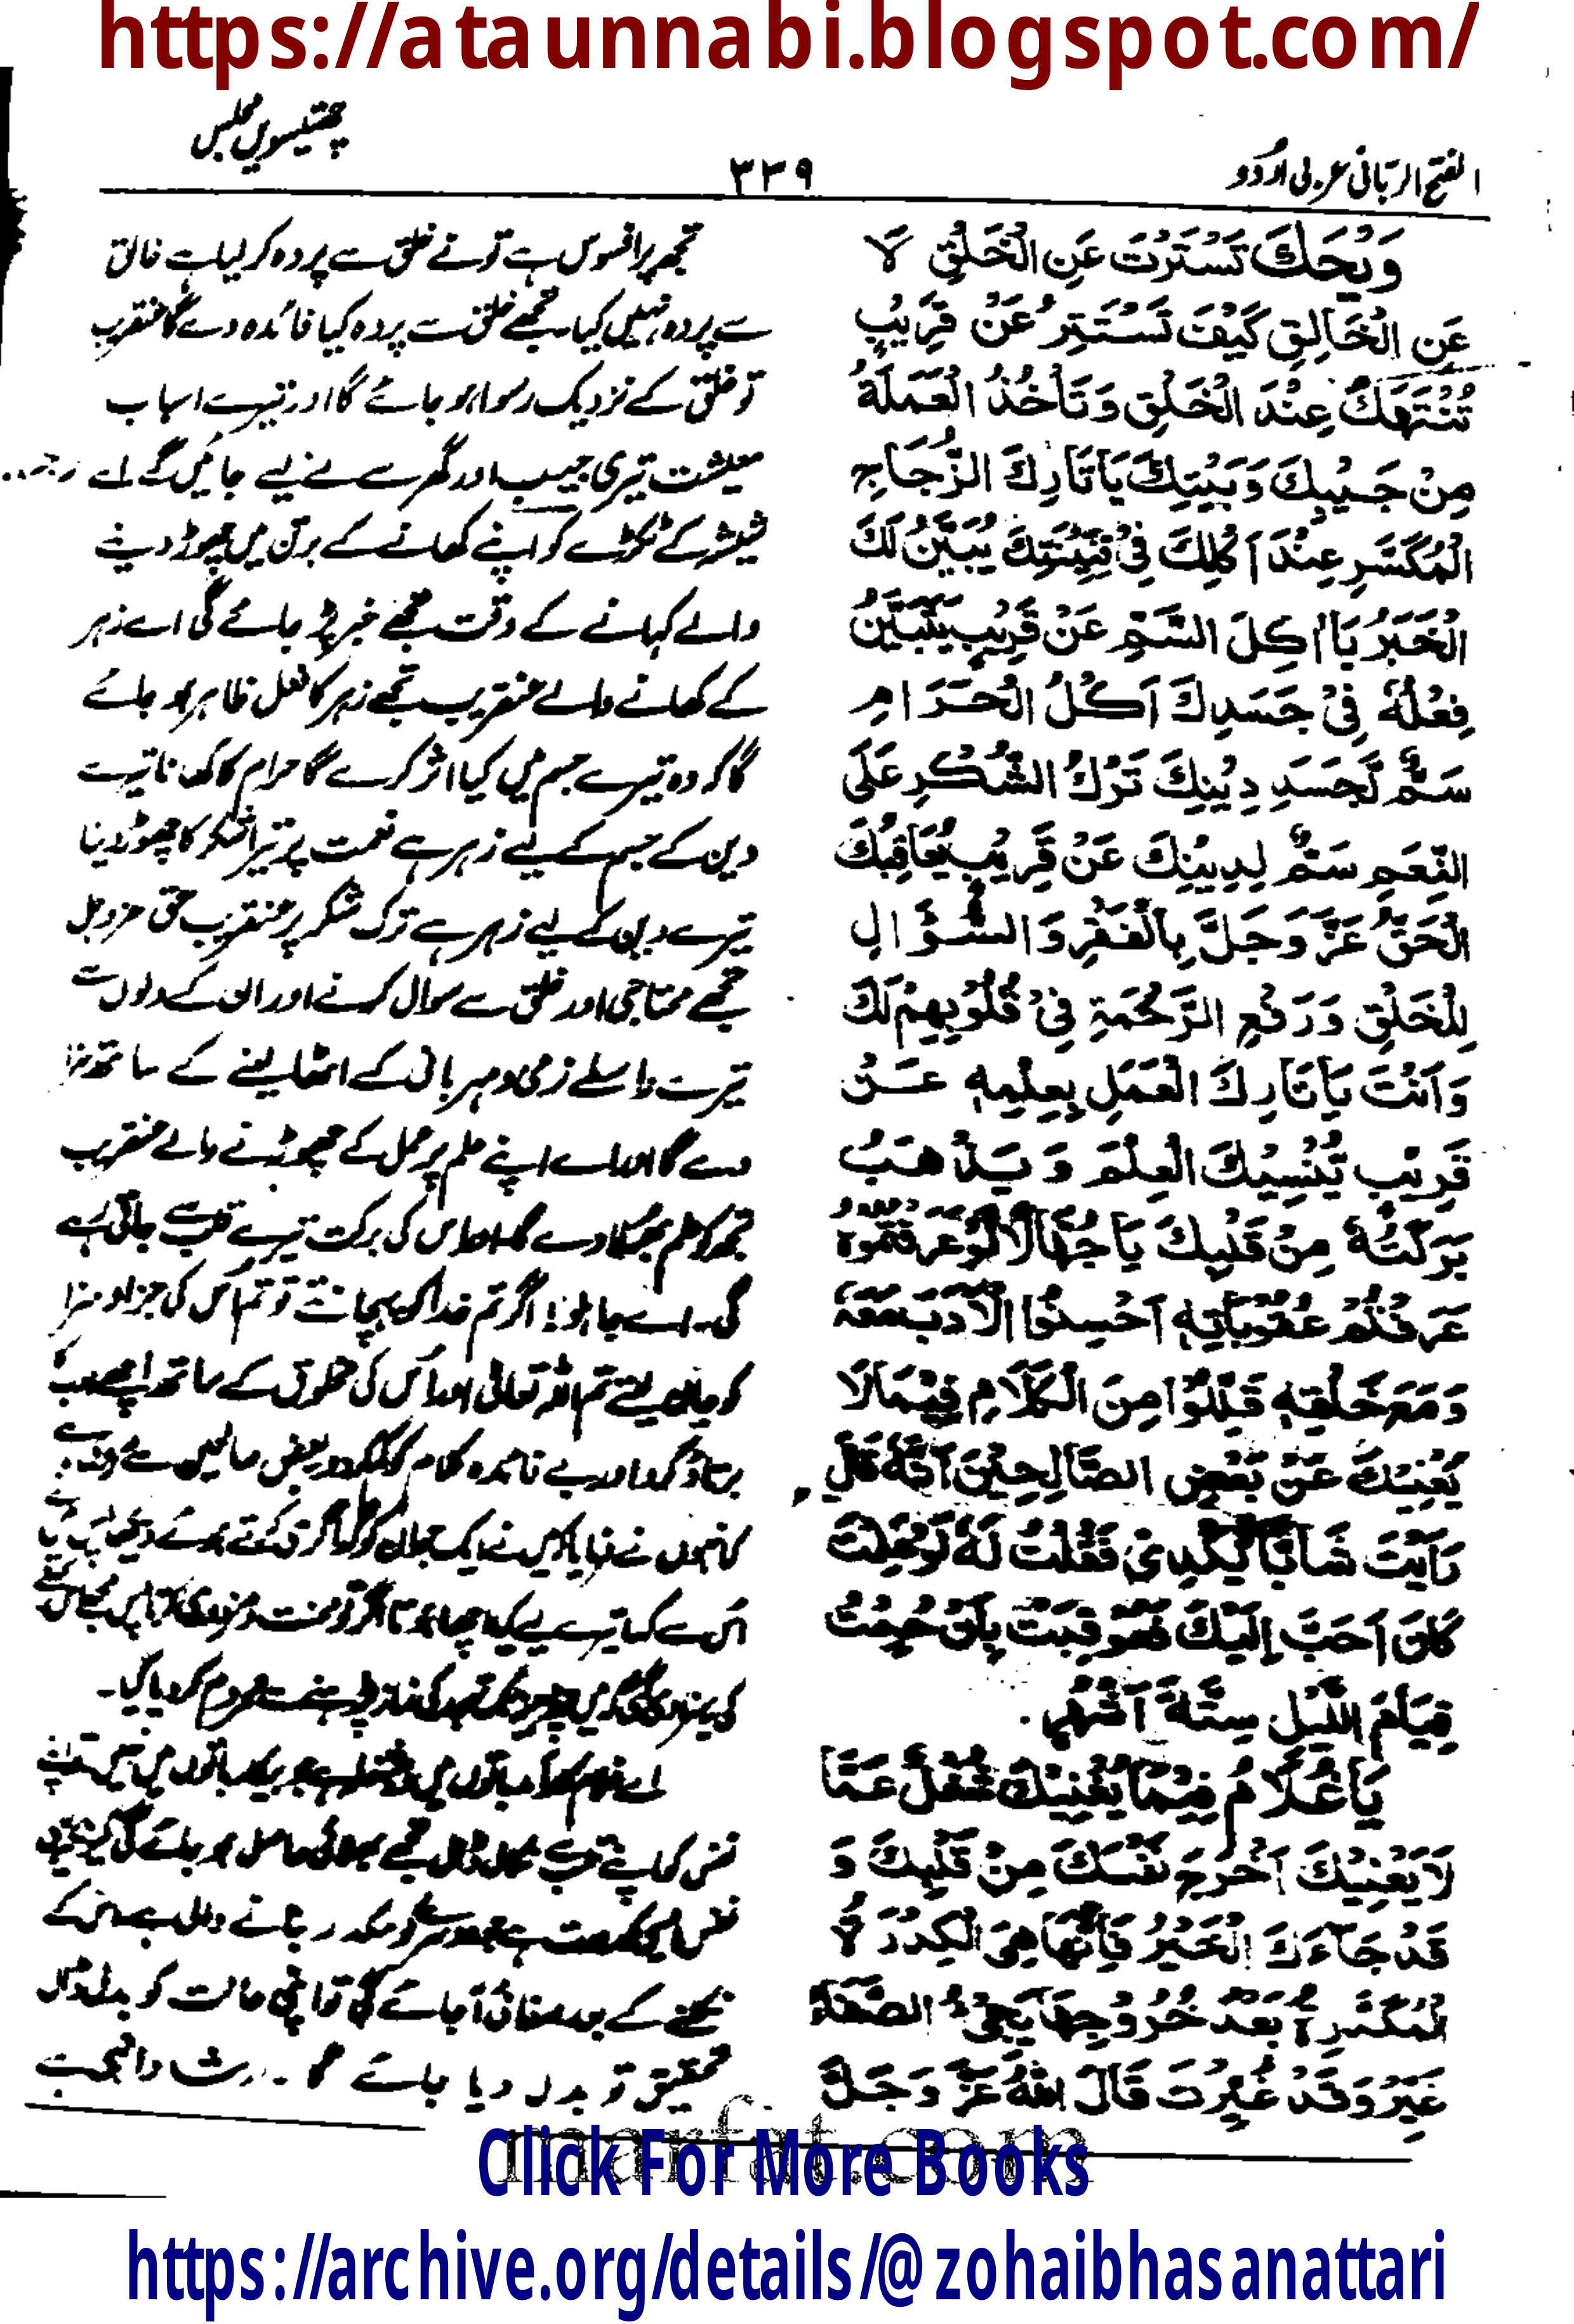 https://ataunnabi.blogspot.com/
الفتح الربانی عربی اُردو
۳۳۹
چھتیسویں مجلس
وَيْحَكَ تَسْتَرْتَ عَنِ الْخَلْقِ لَا
عَنِ الْخَالِقِ كَيْفَ تَسْتَتِرُ عَنْ قَرِيْبٍ
تُنْتَهَكُ عِنْدَ الْخَلْقِ وَتَأْخُذُ الْعَمَلَةُ
مِنْ جَيْبِكَ وَبَيْتِكَ يَا تَارِكَ الزُّجَاجِ
الْمُكَسَّرِ عِنْدَ اَكْلِكَ فِيْ يُبَيَّنُ لَكَ
الْخَبَرُ يَا اٰكِلَ السَّمِّ عَنْ قَرِيْبٍ يَتَبَيَّنُ
فِعْلُهٗ فِيْ جَسَدِكَ اَكْلُ الْحَرَامِ
سَمٌّ لِّجَسَدِ دِيْنِكَ تَرْكُ الشُّكْرِ عَلَى
النِّعَمِ سَمٌّ لِدِيْنِكَ عَنْ قَرِيْبٍ يُعَاقِبُكَ
الْحَقُّ عَزَّ وَجَلَّ بِالْفَقْرِ وَالسُّؤَالِ
لِلْخَلْقِ وَرَفْعِ الرَّحْمَةِ فِيْ قُلُوْبِهِمْ لَكَ
وَاَنْتَ يَا تَارِكَ الْعَمَلِ بِعِلْمِهٖ عَنْ
قَرِيْبٍ يُنْسِيْكَ الْعِلْمَ وَ يَذْهَبُ
بَرَكَتُهٗ مِنْ قَلْبِكَ يَا جُهَّالُ لَوْ عَرَفْتُمُوْهُ
عَرَفْتُمْ عُقُوْبَاتِهٖ اَحْسِنُوا الْاَدَبَ مَعَهٗ
وَمَعَ خَلْقِهٖ قَلِّلُوْا مِنَ الْكَلَامِ فِيْمَا لَا
يَعْنِيْكَ عَنْ بَعْضِ الصَّالِحِيْنَ اَنَّهٗ قَالَ
رَاَيْتُ شَابًّا يُّكْدِيْ فَقُلْتُ لَهٗ لَوْ عَمِلْتَ
كَانَ اَحَبَّ اِلَيْكَ فَعُوْقِبْتُ بِاَنْ حُرِمْتُ
قِيَامَ اللَّيْلِ سِتَّةَ اَشْهُرٍ.
يَا غُلَامُ فِيْمَا يَعْنِيْكَ شُغْلٌ عَمَّا
لَا يَعْنِيْكَ اَخْرِجْ نَفْسَكَ مِنْ قَلْبِكَ وَ
قَدْ جَآءَكَ الْخَيْرُ فَاِنَّهَا هِيَ الْكِدْرَةُ
الْمُكَدِّرَةُ بَعْدَ خُرُوْجِهَا يَجِيْءُ الصَّفَآءُ
غَيِّرْ وَقَدْ غُيِّرْتَ قَالَ اللّٰهُ عَزَّ وَجَلَّ
تجھ پر افسوس ہے تو نے خلق سے پردہ کر لیا ہے خالق
سے پردہ نہیں کیا۔ تجھے خلق سے پردہ کیا فائدہ دے گا عنقریب
تو خلق کے نزدیک رسوا ہو جائے گا اور تیرے اسباب
معیشت تیری جیب اور گھر سے لے لیے جائیں گے اے
شیشہ کے ٹکڑے کو اپنے کھانے کے برتن میں چھوڑ دینے
والے کھانے کے وقت تجھے خبر پڑ جائے گی اے زہر
کے کھانے والے عنقریب تجھے زہر کا فعل ظاہر ہو جائے
گا کہ وہ تیرے جسم میں کیا اثر کرے گا حرام کا کھانا تیرے
دین کے جسم کے لیے زہر ہے نعمت پر تیرا شکر کا چھوڑ دینا
تیرے دین کے لیے زہر ہے ترک شکر پر عنقریب حق عزوجل
تجھے محتاجی اور خلق سے سوال کرنے اور ان کے دلوں سے
تیرے واسطے نرمی و مہربانی کے اٹھا لینے کے ساتھ سزا
دے گا اور اے اپنے علم پر عمل کے چھوڑنے والے عنقریب
تجھ کو علم بھلا دے گا اور اس کی برکت تیرے قلب سے جاتی رہے
گی۔ اے جاہلو! اگر تم خدا کو پہچانتے تو تم اُس کی جزا و سزا
کو جان لیتے تم اللہ تعالیٰ اور اُس کی مخلوق کے ساتھ اچھے ادب سے
برتاؤ کرو اور بے فائدہ کلام کو کم کر دو بعض صالحین سے
کہ انہوں نے فرمایا میں نے ایک جوان کو گداگری کرتے ہوئے دیکھا پس میں نے
کر دیا گیا۔
نکلنے کے بعد صفائی آ جائے گی تو اپنی حالت کو بدل ڈال
تحقیق تو بدل دیا جائے گا۔
marfat.com
Click For More Books
https://archive.org/details/@zohaibhasanattari